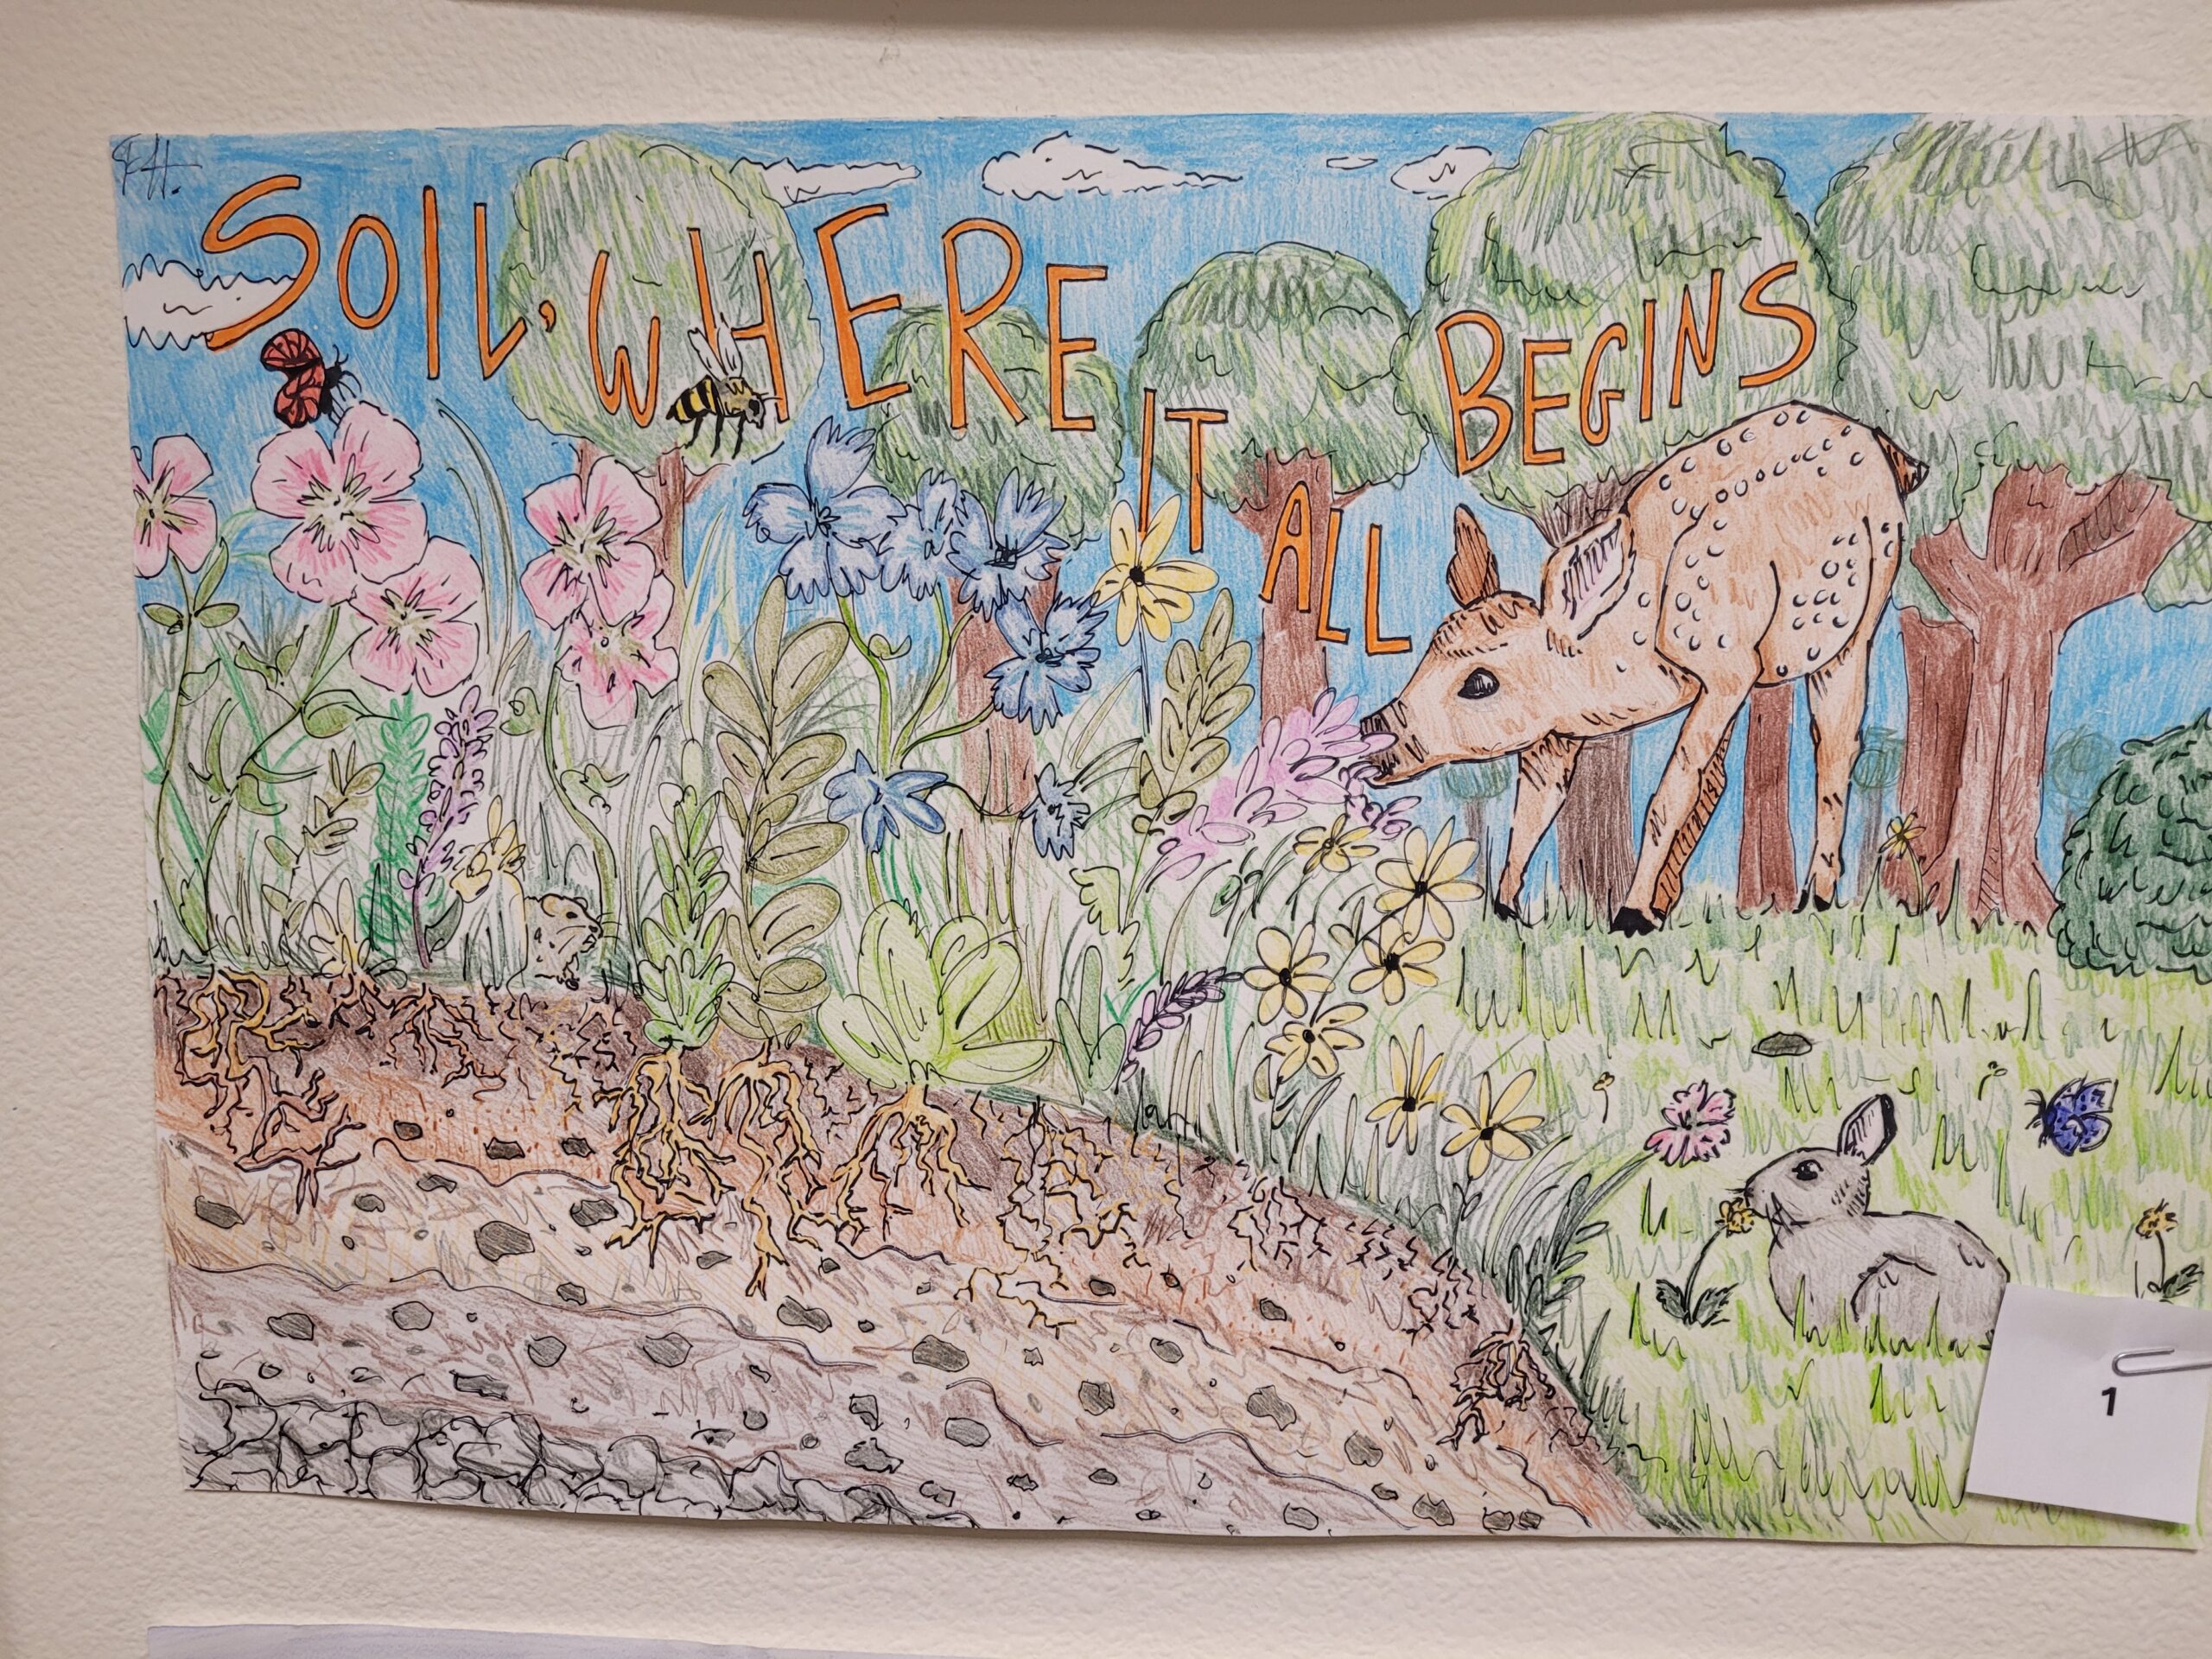 EH.
SOIL, WHERE IT ALL BEGINS
1